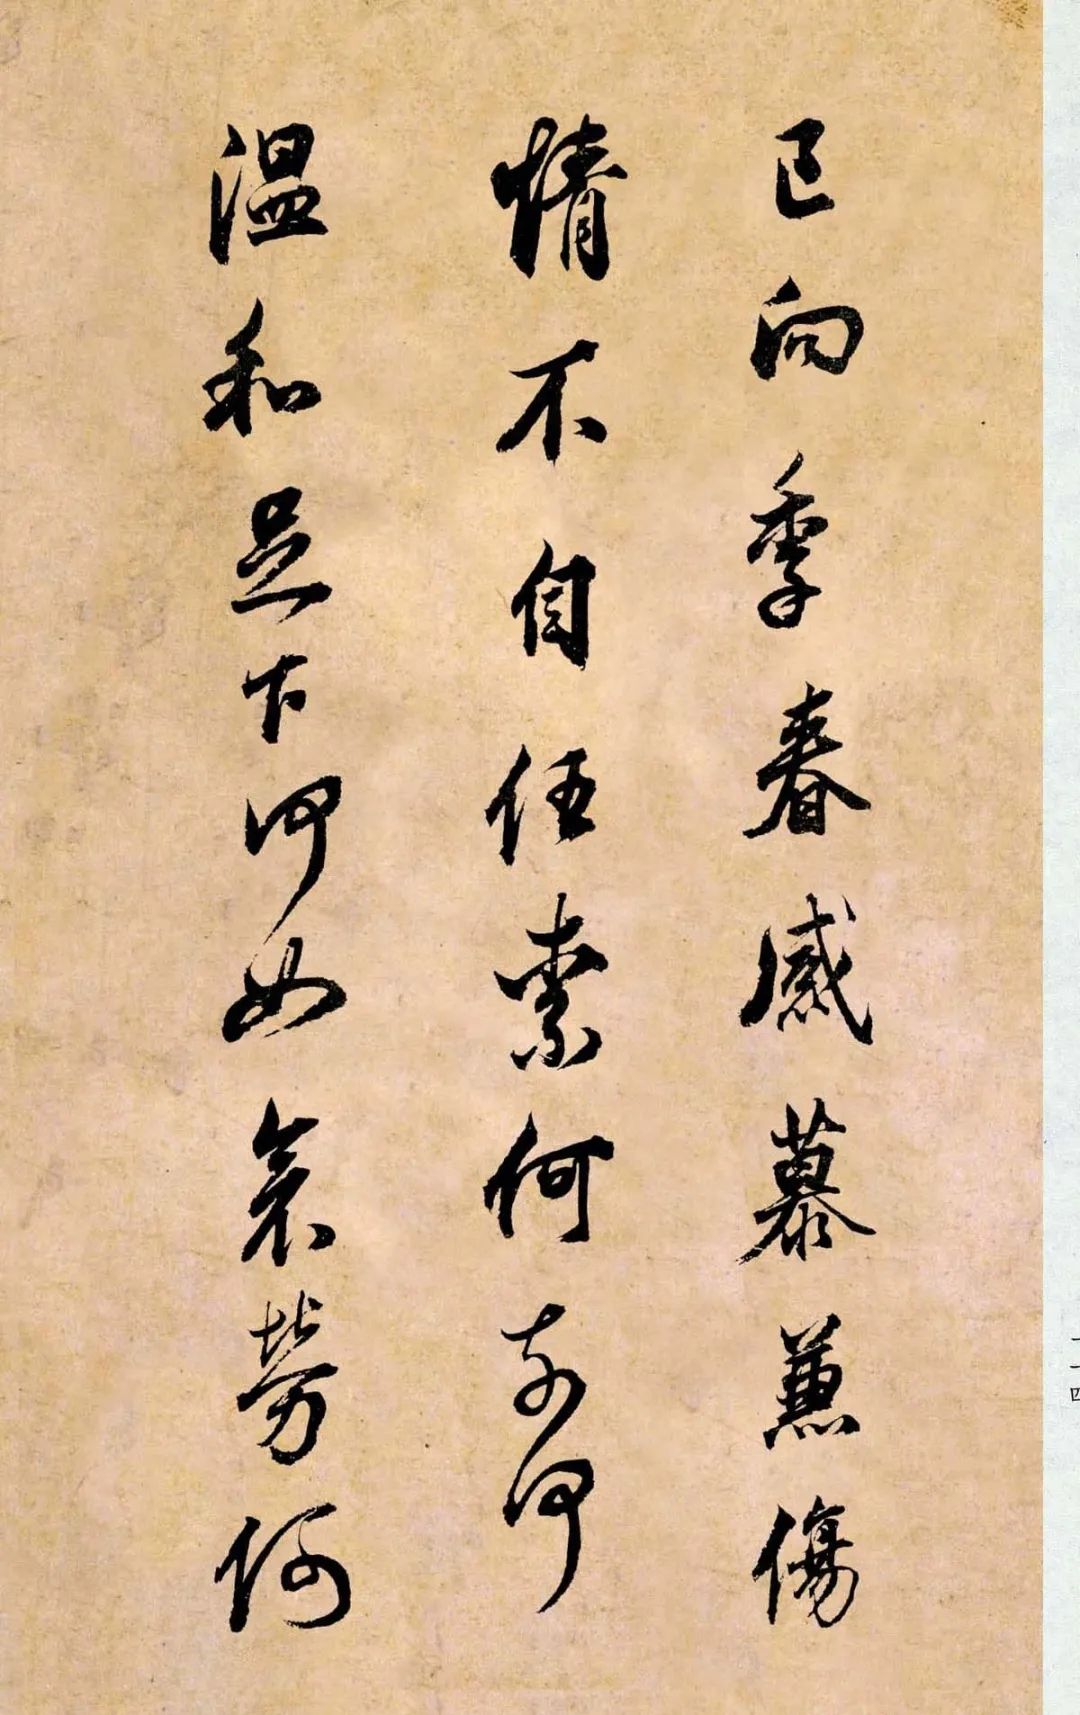 已向季春感慕兼傷
情不自任奈何奈何
温和足下何如哀勞何